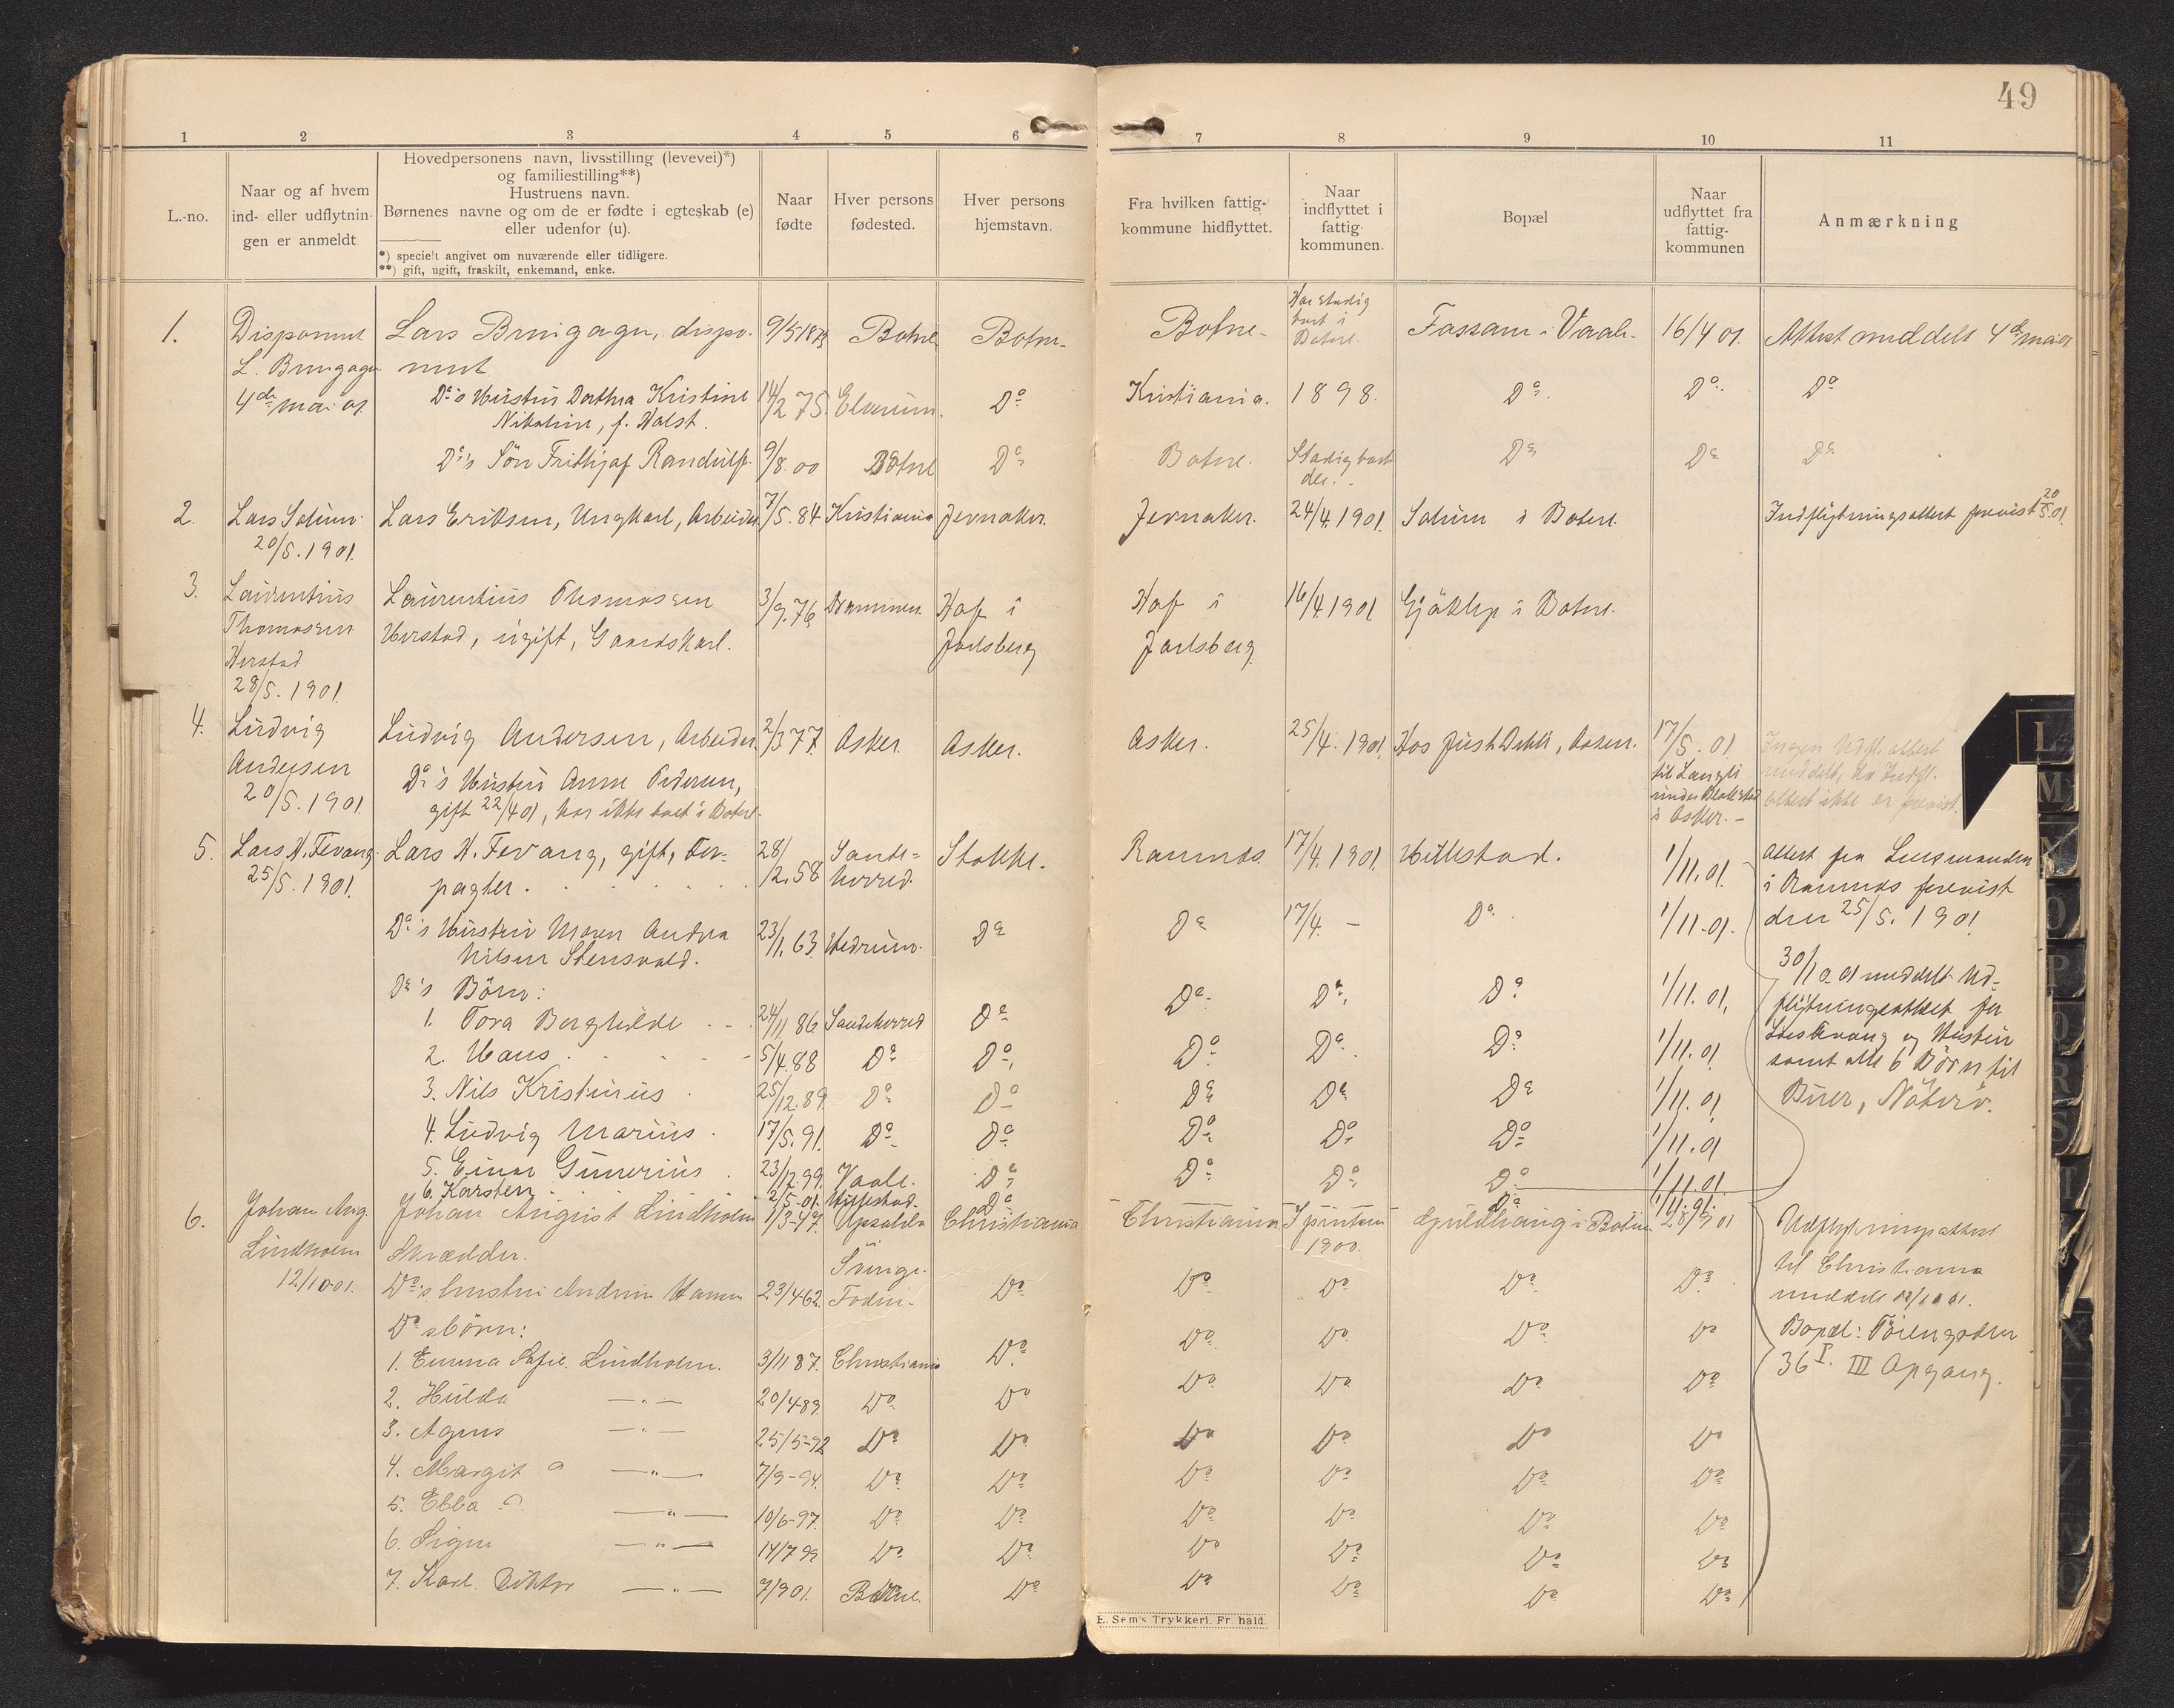 49
1 2 3 4 5 6 7 8 9 10 11
L.-no.
Naar og af hvem
ind- eller udflytnin-
gen er anmeldt
Hovedpersonens navn, livsstilling (levevei)*)
og familiestilling**)
Hustruens navn.
Børnenes navne og om de er fødte i egteskab (e)
eller udenfor (u).
*) specielt angivet om nuværende eller tidligere.
**) gift, ugift, fraskilt, enkemand, enke.
Naar
fødte
Hver persons
fødested.
Hver persons
hjemstavn.
Fra hvilken fattig-
kommune hidflyttet.
Naar
indflyttet i
fattig-
kommunen.
Bopæl
Naar
udflyttet fra
fattig-
kommunen
Anmærkning
1. Disponent
L. Bru
4de mai 01.
Lars dispo-
nent
9/5 1873 Botne Botne Botne Har stadig
boet i
Botne.
Fossan i Vaale 16/4 01. Attest meddelt 4de mai 01
Do's Hustru Dorthea Kristine
Nikoline, f. Holst.
14/2 75. Elverum. Do Kristiania. 1898. Do. Do. Do
Do's Sön Frithjof Randulf. 9/8.00 Botne Do Botne. Stadig boet
der. Do Do Do
2. Lars Solum
20/5.1901.
Lars Eriksen, Ungkarl, Arbeider 7/5.84 Kristiania Jevnaker. Jevnaker. 24/4.1901. Solum i Botne. Indflytningsattest forevist 20/5.01.
3. Laurentius
Thomassen
Herstad
28/5.1901.
Laurentius Thomassen
Herstad, ugift, Gaardskarl.
3/9.76 Drammen. Hof i
Jarlsberg
Hof i
Jarlsberg
16/4.1901 Gjöklep i Botne.
4. Ludvig
Andersen
20/5.1901.
Ludvig Andersen, Arbeider. 2/3.77. Asker. Asker. Asker. 25/4.1901. Hos Just Dehli, Aasen. 17/5.01
til Langli
under Blakstad
i Asker.-
Ingen Udfl. attest
meddelt, da Indfl.
attest ikke er forevist.
Do's Hustru Anne Pedersen,
gift 22/4 01, har ikke boet i Botne.
5. Lars H. Fevang.
25/5.1901.
Lars H. Fevang, gift, For-
pagter.
28/2.58 Sande-
herred.
Stokke. Ramnes. 17/4.1901. Hillestad. 1/11.01. Attest fra Lensmanden
i Ramnes forevist
den 25/5.1901.
Do's Hustru Maren Andrea
Nilsen Stensvold.
23/1.63. Hedrum. Do Do 17/4. - Do. 1/11.01.
30/10.01 meddelt Ud-
flytningsattest for
Lars Fevang og Hustru
samt alle 6 Börn til
Buer, Nöterö.
Do's Börn:
1. Tora Berghilde 24/11 86 Sandeherred Do Do Do. Do 1/11.01.
2. Hans 5/4.88 Do Do. Do Do. Do 1/11.01
3. Nils Kristinius 25/12.89 Do Do Do Do Do 1/11.01
4. Ludvig Marius. 17/5.91. Do Do Do Do. Do 1/11.01
5. Einar Gunerius. 23/12.99. Vaale. Do Do Do. Do 1/11.01
6. Karsten 2/5-01. Hillestad. Do Do 1/11.01.
6. Johan Aug.
Lindholm
12/10 01.
Johan August Lindholm
Skrædder.
1/3-47. Upsala
Sverige.
Christiania Christiania I sommer
1900.
i Botne 28/9 01 Udflytningsattest
til Christiania
meddelt 12/10 01.
Bopæl: Töiengaden
36 I. III Opgang.
Do's hustru Andrine Hansen 23/4 62. Do Do Do Do Do
Do's börn:
1. Emma Sofie Lindholm. 3/11 87. Christiania Do. Do Do Do Do
2. Hulda —"— 20/4 89. Do Do Do Do Do Do
3. Agnes —"— 25/5-92 Do Do Do Do Do Do
4. Margit —"— 7/9-94. Do Do Do Do Do Do
5. Ebba —"— 10/6-97. Do Do Do Do Do Do
6. Signe —"— 14/7 99 Do Do Do Do Do Do
7. Karl Viktor —"— 7/9 01. Botne. Do Do Do Do Do
E. Sem's Trykkeri. Fr. hald.
L
M
N
O
P
Q
R
S
X
Y